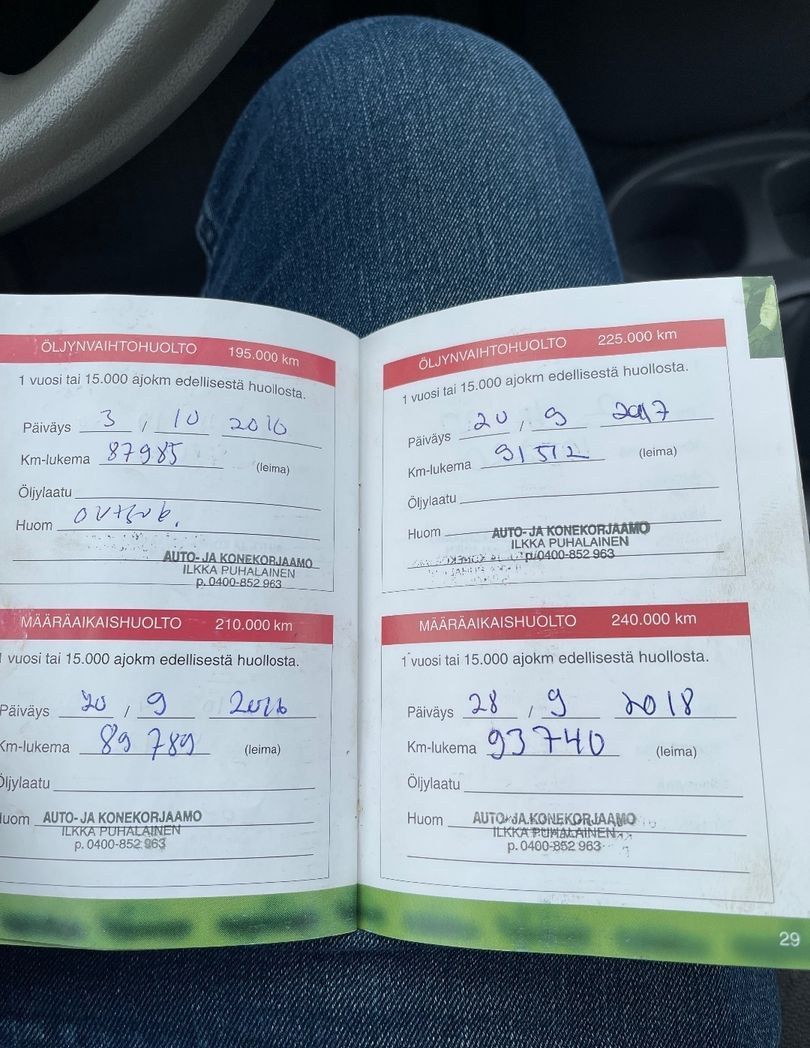 ÖLJYNVAIHTOHUOLTO 195.000 km
1 vuosi tai 15.000 ajokm edellisestä huollosta.
Päiväys 3 / 10 2010
Km-lukema 87985 (leima)
Öljylaatu
Huom
AUTO- JA KONEKORJAAMO
ILKKA PUHALAINEN
p. 0400-852 963
MÄÄRÄAIKAISHUOLTO 210.000 km
1 vuosi tai 15.000 ajokm edellisestä huollosta.
Päiväys 20 / 9 2016
Km-lukema 89 789 (leima)
Öljylaatu
Huom AUTO- JA KONEKORJAAMO
ILKKA PUHALAINEN
p. 0400-852 963
ÖLJYNVAIHTOHUOLTO 225.000 km
1 vuosi tai 15.000 ajokm edellisestä huollosta.
Päiväys 20 / 9 2017
Km-lukema 91512 (leima)
Öljylaatu
Huom AUTO- JA KONEKORJAAMO
ILKKA PUHALAINEN
p. 0400-852 963
MÄÄRÄAIKAISHUOLTO 240.000 km
1 vuosi tai 15.000 ajokm edellisestä huollosta.
Päiväys 28 / 9 2018
Km-lukema 93740 (leima)
Öljylaatu
Huom AUTO- JA KONEKORJAAMO
ILKKA PUHALAINEN
p. 0400-852 963
29